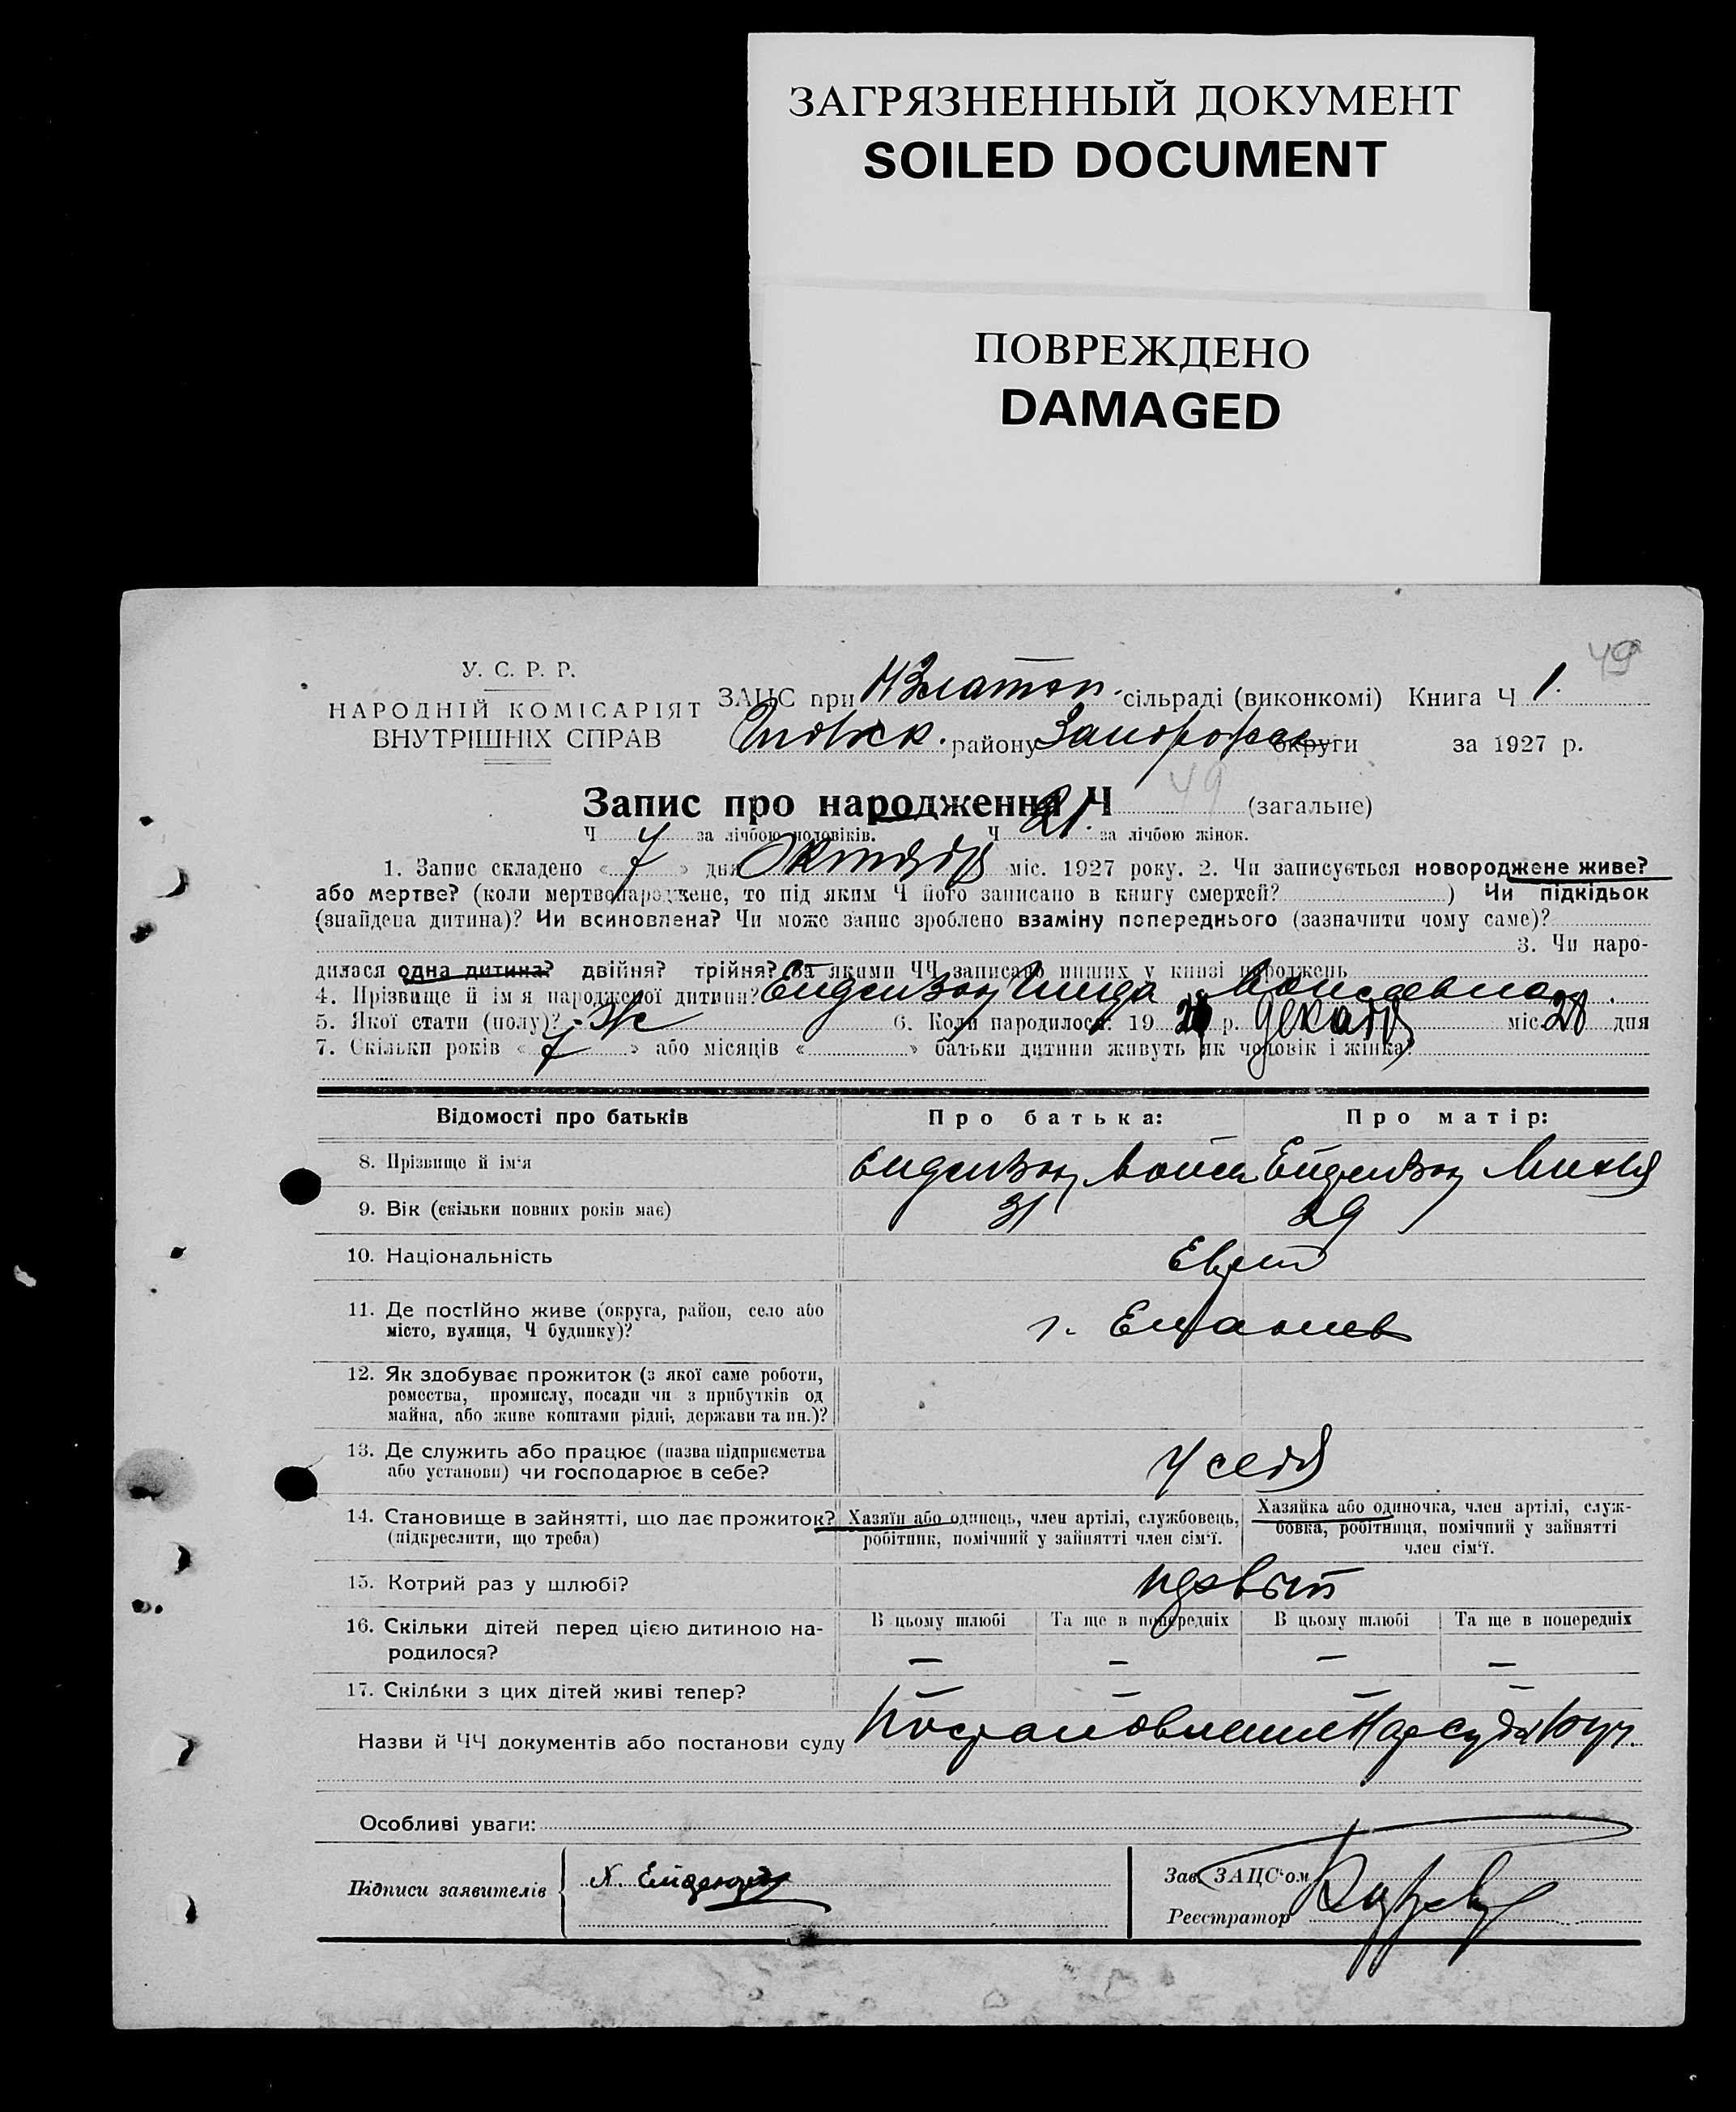 ЗАГРЯЗНЕННЫЙ ДОКУМЕНТ
SOILED DOCUMENT
ПОВРЕЖДЕНО
DAMAGED
49
У. С. Р. Р.
НАРОДНІЙ КОМІСАРІЯТ
ВНУТРІШНІХ СПРАВ
ЗАЦС при НЗлатоп. сільраді (виконкомі) Книга Ч 1.
району Запорожск округи за 1927 р.
Запис про народження Ч 49 (загальне)
Ч за лічбою чоловіків. Ч 21. за лічбою жінок.
1. Запис складено « 7 » дня Октября міс. 1927 року. 2. Чи записується новороджене живе?
або мертве? (коли мертвонароджене, то під яким Ч його записано в книгу смертей? ) Чи підкідьок
(знайдена дитина)? Чи всиновлена? Чи може запис зроблено взаміну попереднього (зазначити чому саме)?
3. Чи наро-
дилася одна дитина? двійня? трійня? За якими ЧЧ записано инших у книзі народжень
4. Прізвище й ім'я народженої дитини?
5. Якої стати (полу)? Ж 6. Коли народилося: 19 р. декабр міс. 28 дня
7. Скільки років « 7 » або місяців « » батьки дитини живуть як чоловік і жінка?
Відомості про батьків Про батька: Про матір:
8. Прізвище й ім'я
9. Вік (скільки повних років має) 31 29
10. Національність Евреи
11. Де постійно живе (округа, район, село або
місто, вулиця, Ч будинку)?
12. Як здобуває прожиток (з якої саме роботи,
ремества, промислу, посади чи з прибутків од
майна, або живе коштами рідні, держави та ин.)?
13. Де служить або працює (назва підприємства
або установи) чи господарює в себе? У себя
14. Становище в зайнятті, що дає прожиток?
(підкреслити, що треба)
Хазяїн або одинець, член артілі, службовець,
робітник, помічний у зайнятті член сім'ї.
Хазяйка або одиночка, член артілі, служ-
бовка, робітниця, помічний у зайнятті
член сім'ї.
15. Котрий раз у шлюбі?
16. Скільки дітей перед цією дитиною на-
родилося?
В цьому шлюбі Та ще в попередніх В цьому шлюбі Та ще в попередніх
— — — —
17. Скільки з цих дітей живі тепер? — — — —
Назви й ЧЧ документів або постанови суду Постановление Нарсуда
Особливі уваги:
Підписи заявителів
Зав. ЗАЦС'ом
Реєстратор